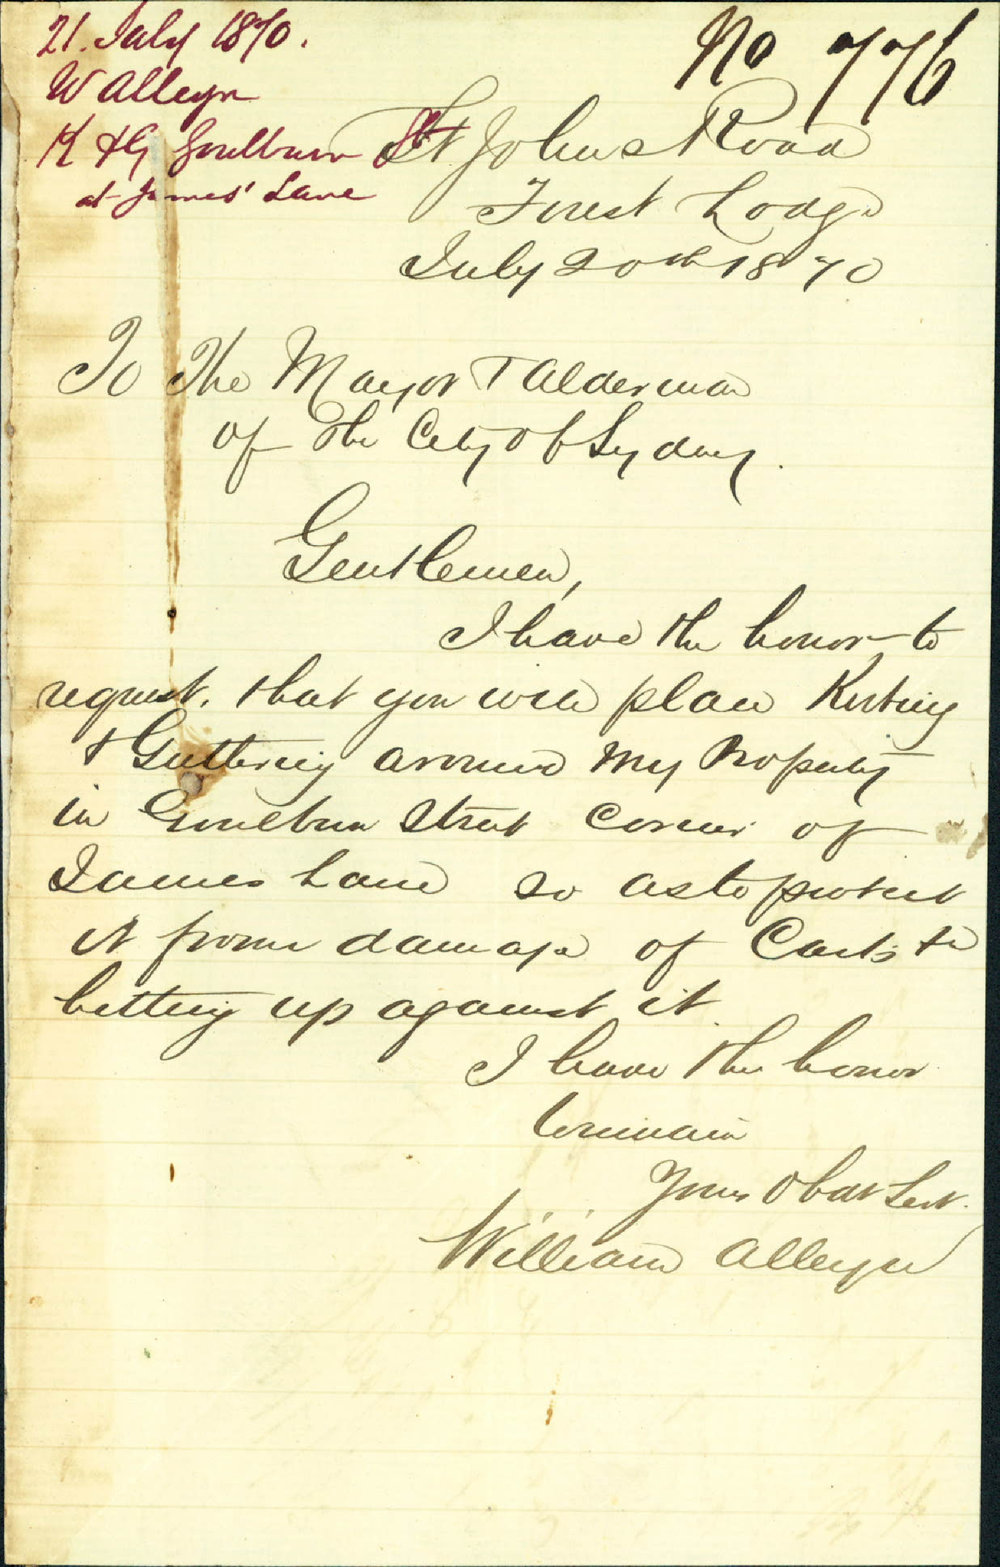 21. July 1870.
W Alleyn
K & G Goulburn St
at James' Lane
No 776
St Johns Road
Forest Lodge
July 20th 1870
To The Mayor & Alderman
of the City of Sydney.
Gentlemen,
I have the honor to
request, that you will place Kirbing
& Guttering around My Property
in Goulburn Street Corner of
James Lane so as to protect
it from damage of Carts &c
butting up against it.
I have the honor
to remain
Your Obdt Servt.
William Alleyn